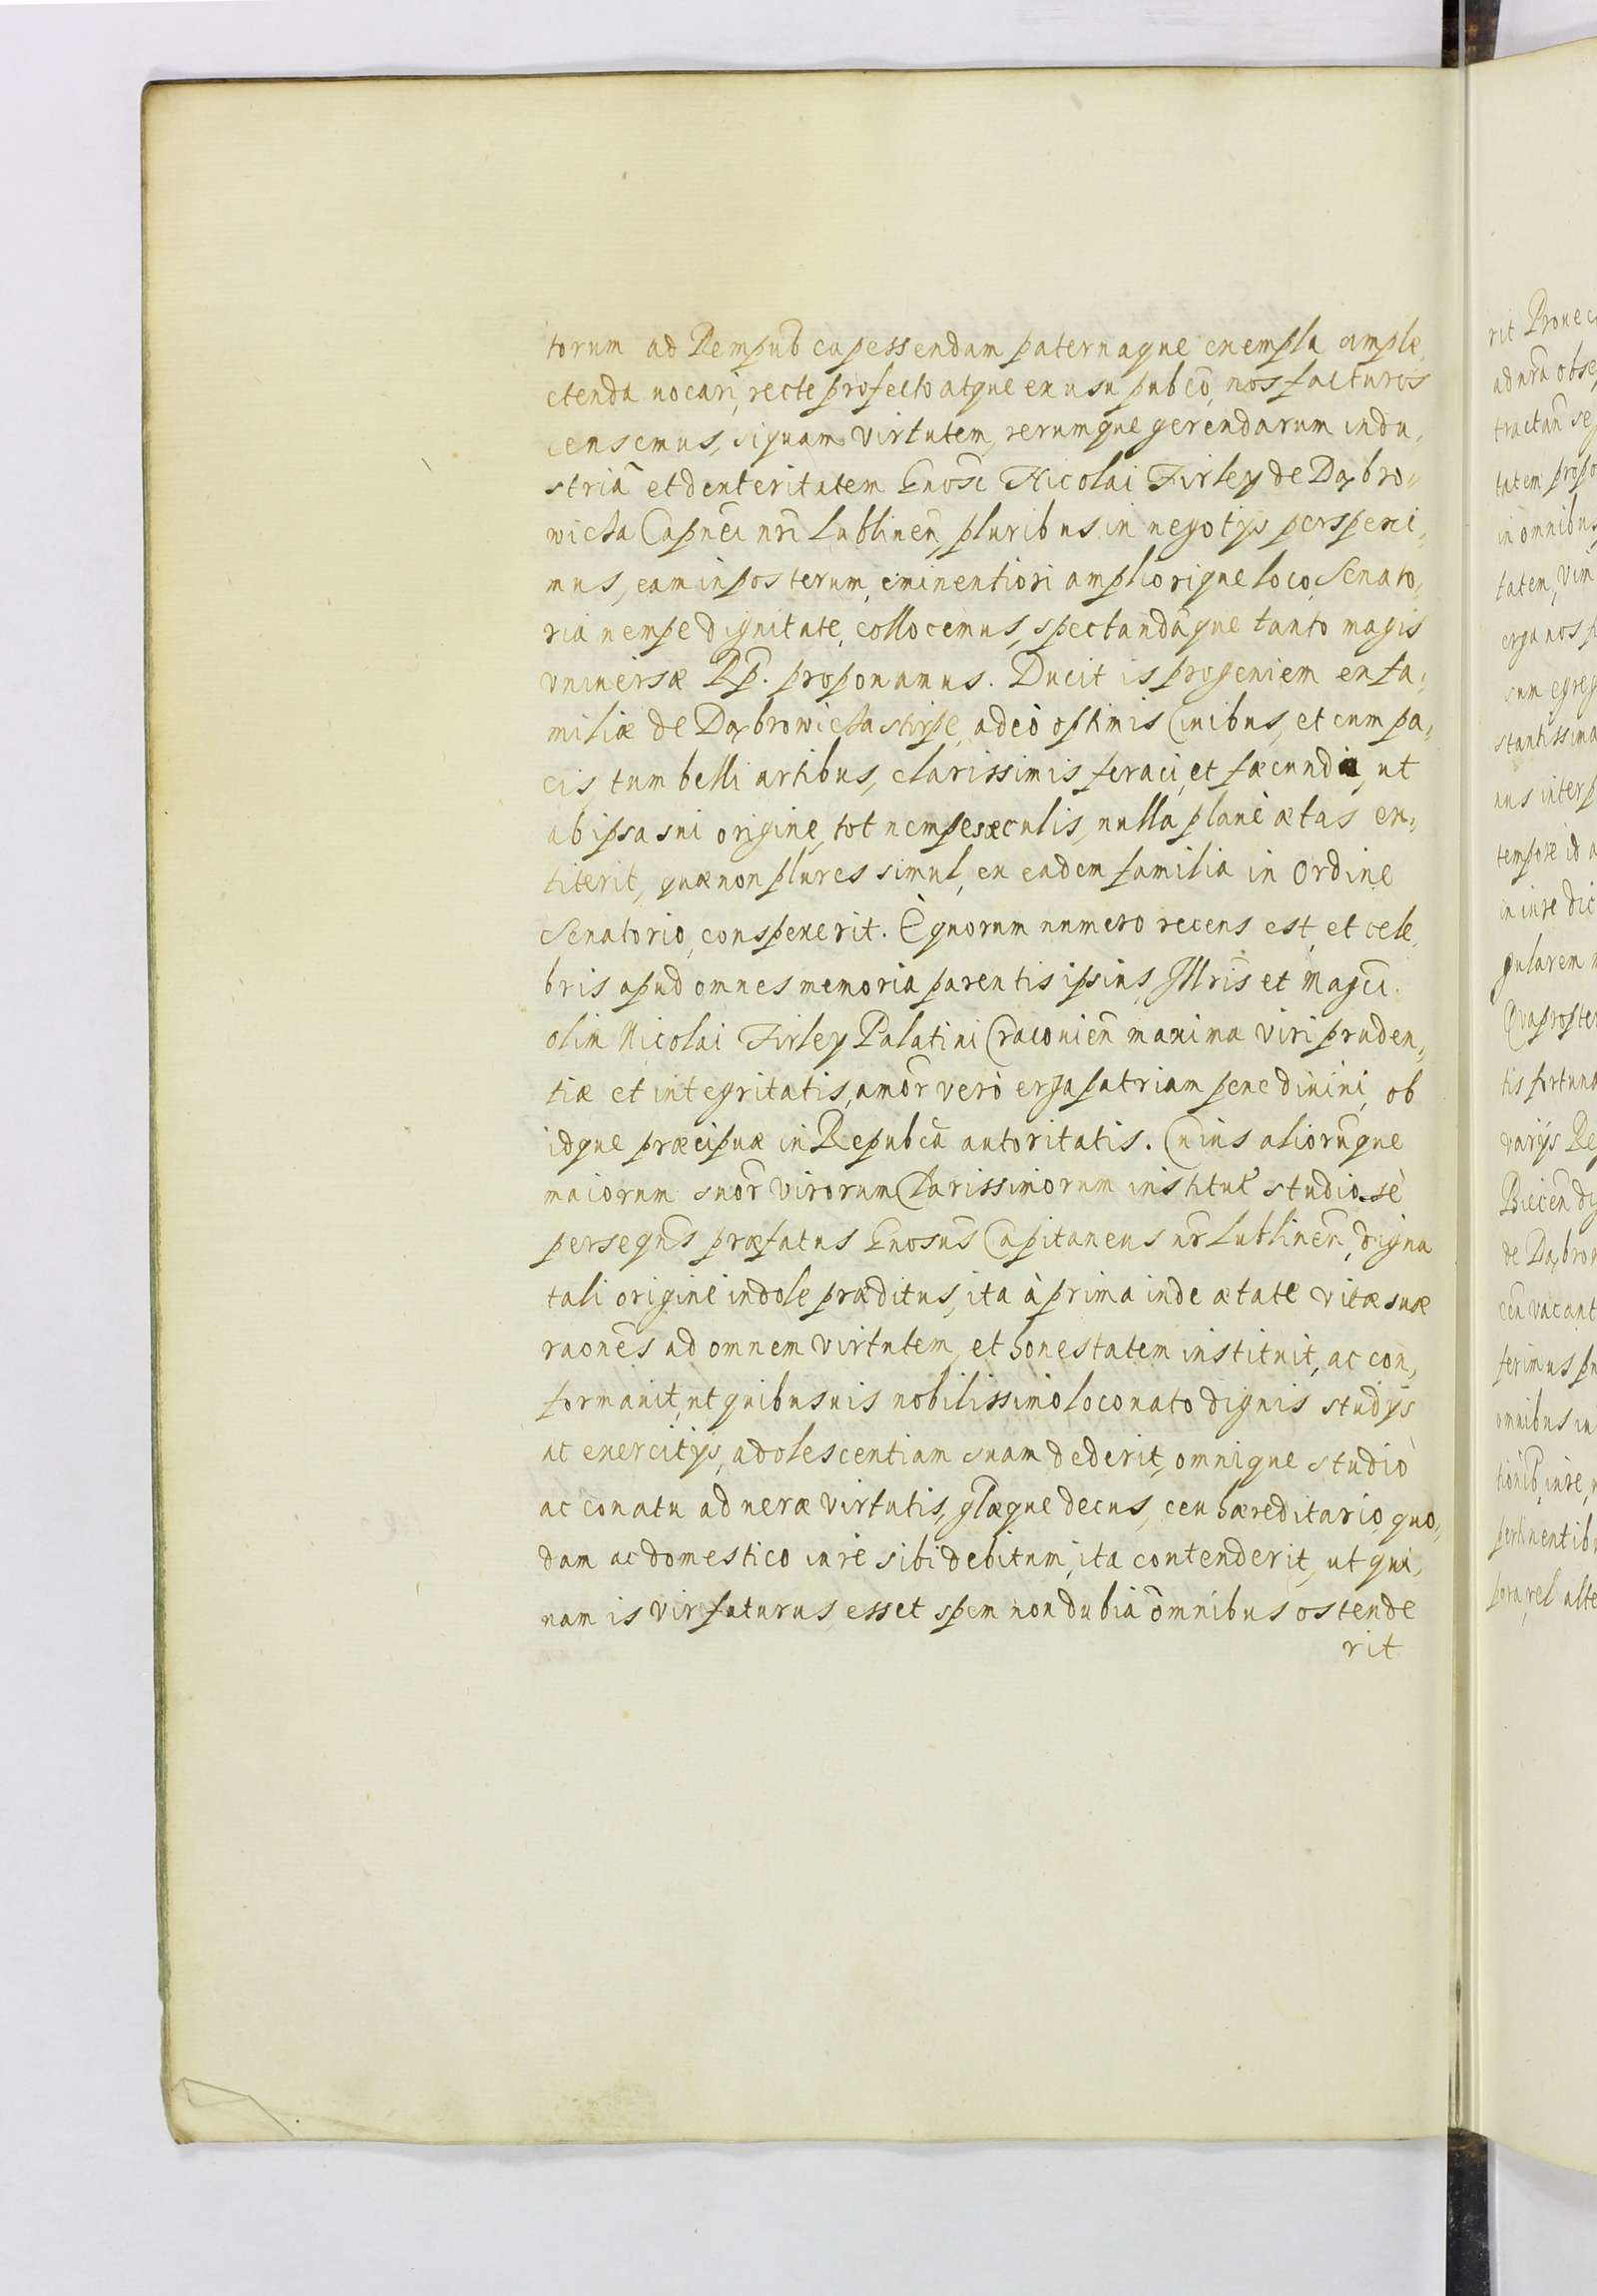 torum ad Rempub̃ capessendam paternaque exempla ample,
ctenda uocari, recte profecto atque ex usu pub̃co, nos facturos
censemus, si quam virtutem, rerumque gerendarum indu,
striã et dexteritatem Gnosi Nicolai Firley de Dąbro,,
wicza Capñei nr̃i Lublineñ, pluribus in negotijs perspexi,
mus, eam in posterum, eminentiori ampliorique loco, Senato,
ria nempe dignitate, collocemus, spectandãque tanto magis
vniuersæ Rp̃. proponamus. Ducit is progeniem ex fa,
miliæ de Dąbrowicza stirpe, adeò optimis Ciuibus, et cum pa,
cis, tum belli artibus, clarissimis feraci, et fœcunda, ut
ab ipsa sui origine, tot nempe sæculis, nulla planè ætas ex,
titerit, quæ non plures simul, ex eadem familia in Ordine
Senatorio, conspexerit. È quorum numero recens est, et cele,
bris apud omnes memoria parentis ipsius, Illr̃is et Magci
olim Nicolai Firley Palatini Cracouień maxima viri pruden,
tiæ et integritatis, amor̃ verò erga patriam pene diuini, ob
idque præcipuæ in Repubcã autoritatis. Cuius aliorũque
maiorum suor̃ virorum Clarissimorum institut̃ studiosè
perseqñs præfatus Gnosus Capitaneus nr̃ Lublineñ, digna
tali origine indole præditus, ita à prima inde ætate vitæ suæ
raonẽs ad omnem virtutem, et honestatem instituit, ac con,
formauit, ut quibusuis nobilissimo loco nato dignis studijs
ac exercitijs, adolescentiam suam dederit, omnique studio
ac conatu ad ueræ virtutis, glæque decus, ceu hæreditario quo,
dam ac domestico iure sibi debitum, ita contenderit, ut qui,
nam is vir futurus esset spem non dubiã omnibus ostende
rit
rit
adnr̃a
tatem
in omnibus
tatem,
erga nos
sum
tempore id a
in iure
tis fortuna
varijs
ferimus
omnibus in